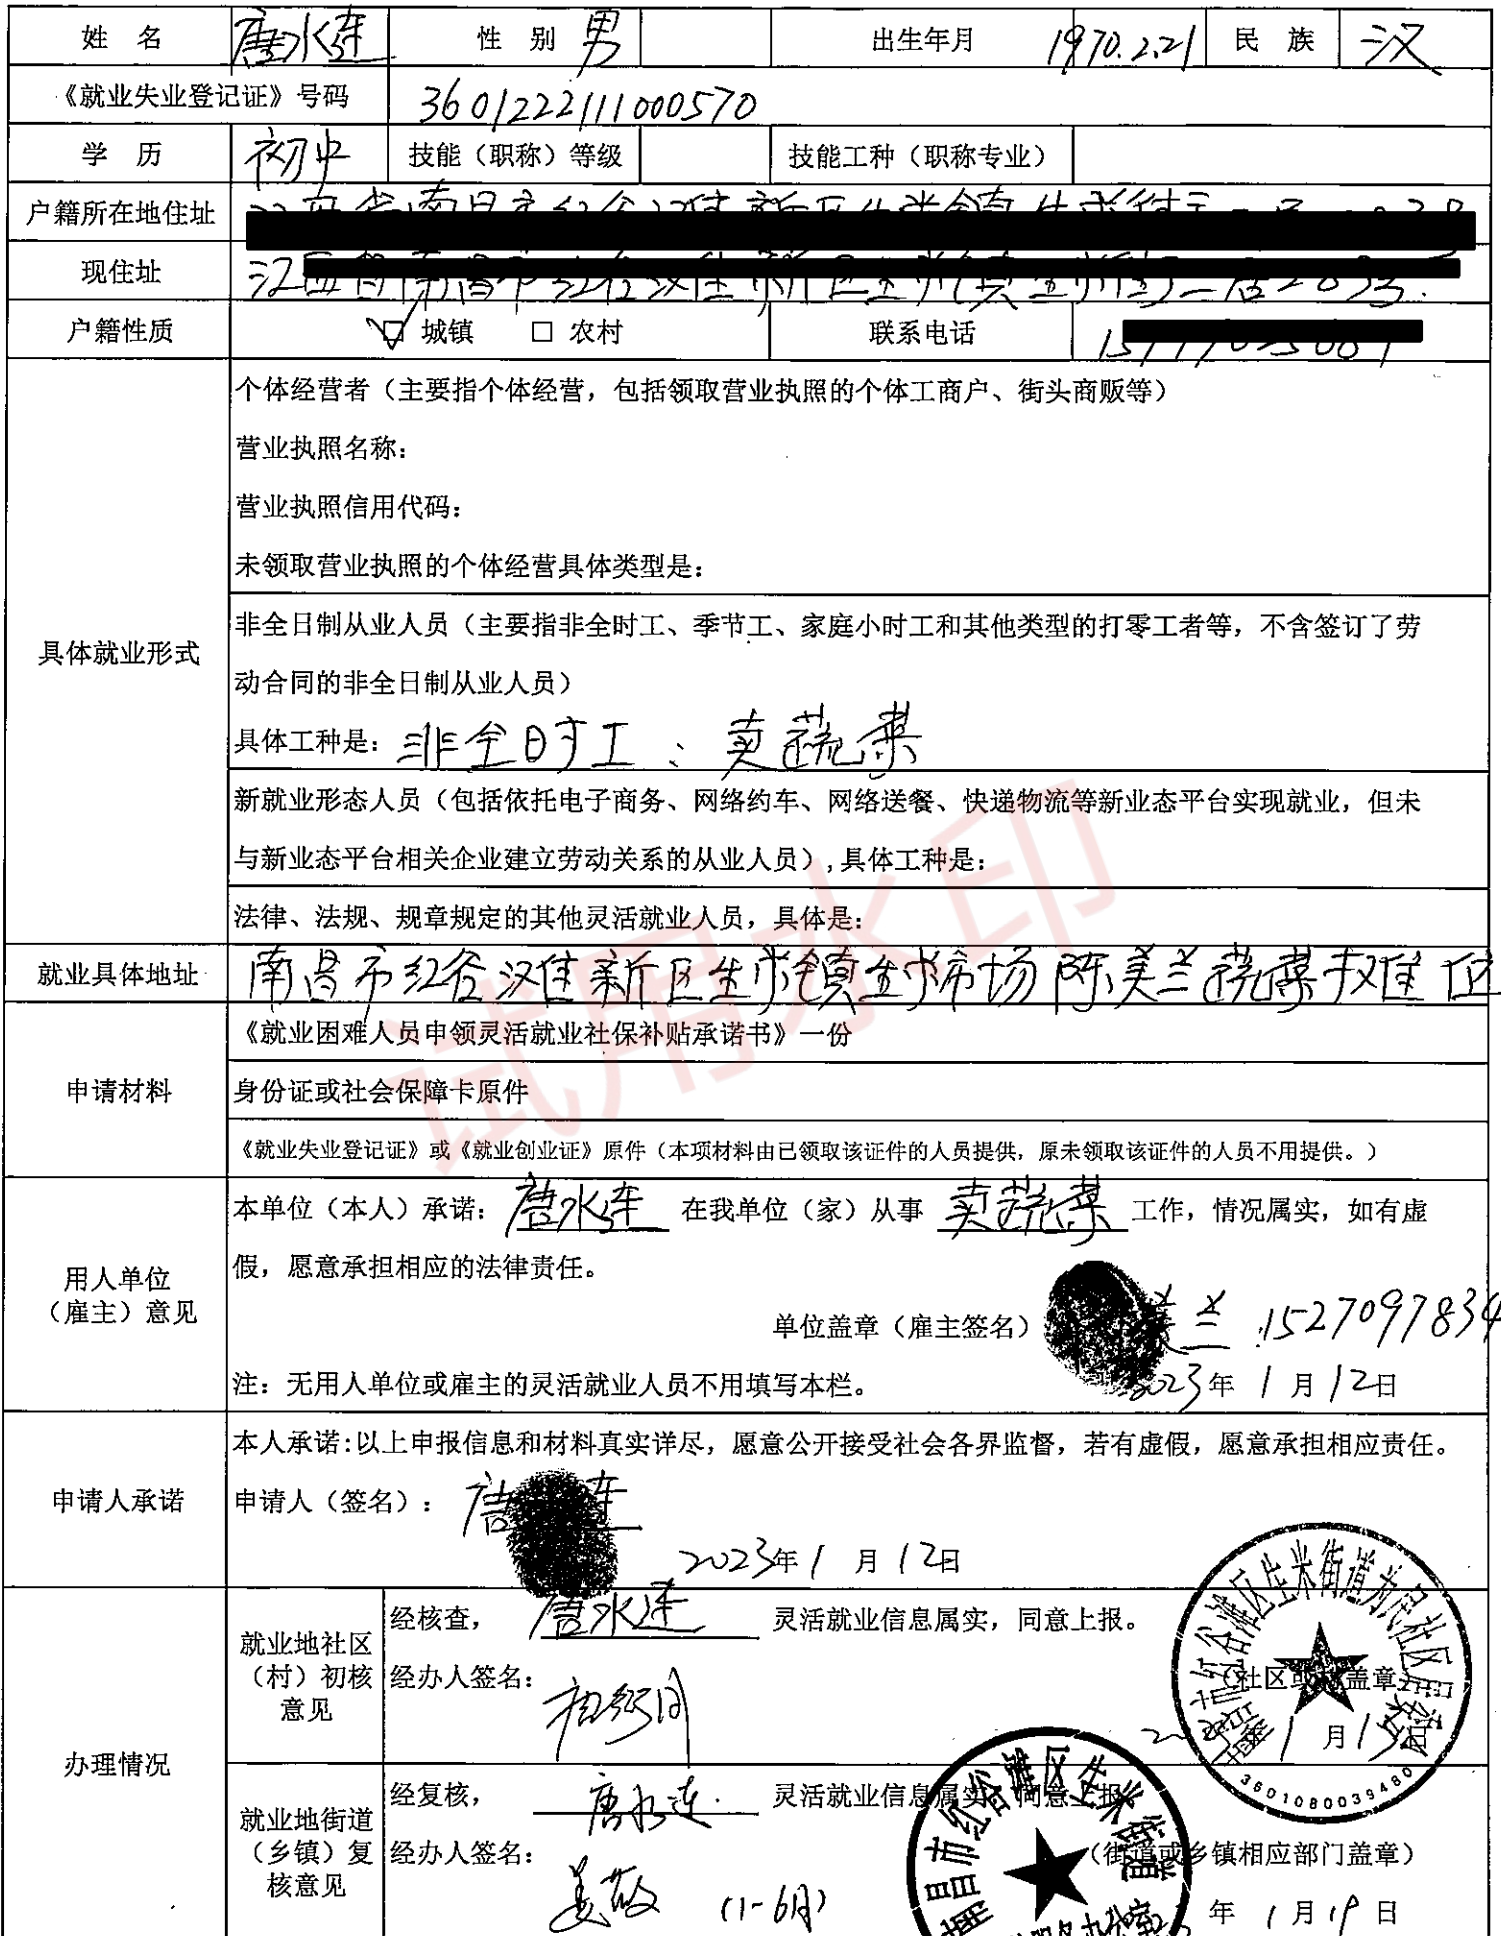 姓 名 唐水连 性 别 男 出生年月 1970.2.21 民 族 汉
《就业失业登记证》号码 3601222111000570
学 历 初中 技能（职称）等级 技能工种（职称专业）
户籍所在地住址
现住址 江
户籍性质 ☑ 城镇 □ 农村 联系电话
个体经营者（主要指个体经营，包括领取营业执照的个体工商户、街头商贩等）
营业执照名称：
营业执照信用代码：
未领取营业执照的个体经营具体类型是：
具体就业形式
非全日制从业人员（主要指非全时工、季节工、家庭小时工和其他类型的打零工者等，不含签订了劳
动合同的非全日制从业人员）
具体工种是：非全时工、卖蔬菜
新就业形态人员（包括依托电子商务、网络约车、网络送餐、快递物流等新业态平台实现就业，但未
与新业态平台相关企业建立劳动关系的从业人员）,具体工种是：
法律、法规、规章规定的其他灵活就业人员，具体是：
就业具体地址 南昌市红谷滩新区生米镇生米市场陈美兰蔬菜摊位
《就业困难人员申领灵活就业社保补贴承诺书》一份
申请材料 身份证或社会保障卡原件
《就业失业登记证》或《就业创业证》原件（本项材料由已领取该证件的人员提供，原未领取该证件的人员不用提供。）
本单位（本人）承诺：唐水连 在我单位（家）从事 卖蔬菜 工作，情况属实，如有虚
假，愿意承担相应的法律责任。
用人单位
（雇主）意见
单位盖章（雇主签名） 美兰 1527097834
2023年 1 月 12日
注：无用人单位或雇主的灵活就业人员不用填写本栏。
本人承诺:以上申报信息和材料真实详尽，愿意公开接受社会各界监督，若有虚假，愿意承担相应责任。
申请人承诺 申请人（签名）： 唐 连
2023年 1 月 12日
办理情况
就业地社区
（村）初核
意见
经核查， 唐水连 灵活就业信息属实，同意上报。
经办人签名：
（社区或村盖章）
年 1 月 13日
南昌市红谷滩区生米街道为民社区居委会
3601080039480
就业地街道
（乡镇）复
核意见
经复核， 唐水连 灵活就业信息属实，同意上报
经办人签名： 姜敏 （1-6月）
（街道或乡镇相应部门盖章）
年 1 月 19 日
南昌市红谷滩区生米街道
试用水印